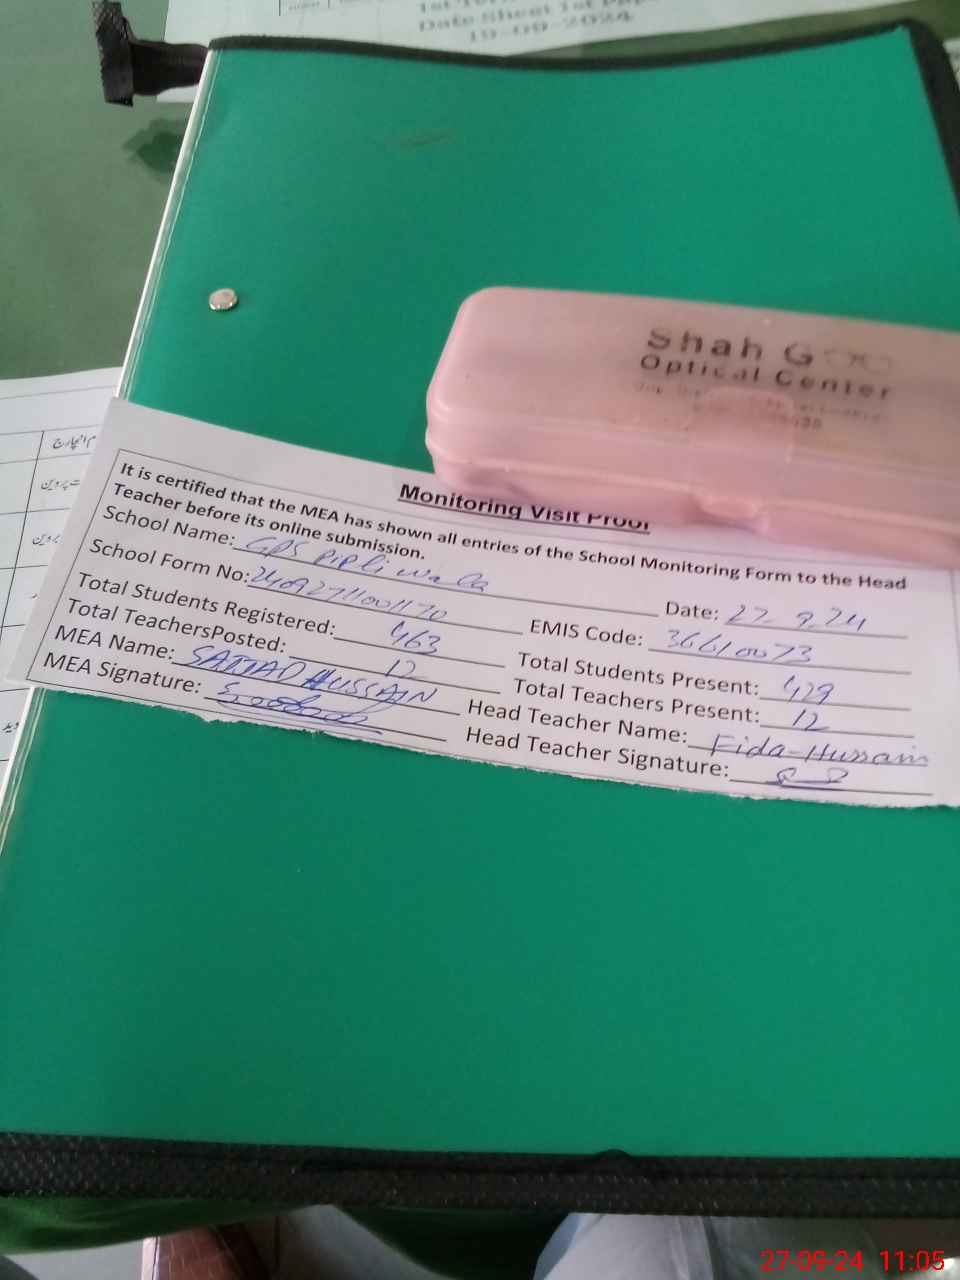 Date Sheet 1st
19-09-2024
Shah G
Optical Center
Monitoring Visit Proof
It is certified that the MEA has shown all entries of the School Monitoring Form to the Head
Teacher before its online submission.
School Name: GPS Pipli Wala Date: 27-9-24
School Form No: 24092711001170 EMIS Code: 36610073
Total Students Registered: 463 Total Students Present: 429
Total TeachersPosted: 12 Total Teachers Present: 12
MEA Name: SAJJAD HUSSAIN Head Teacher Name: Fida-Hussain
MEA Signature: Head Teacher Signature:
27-09-24 11:05